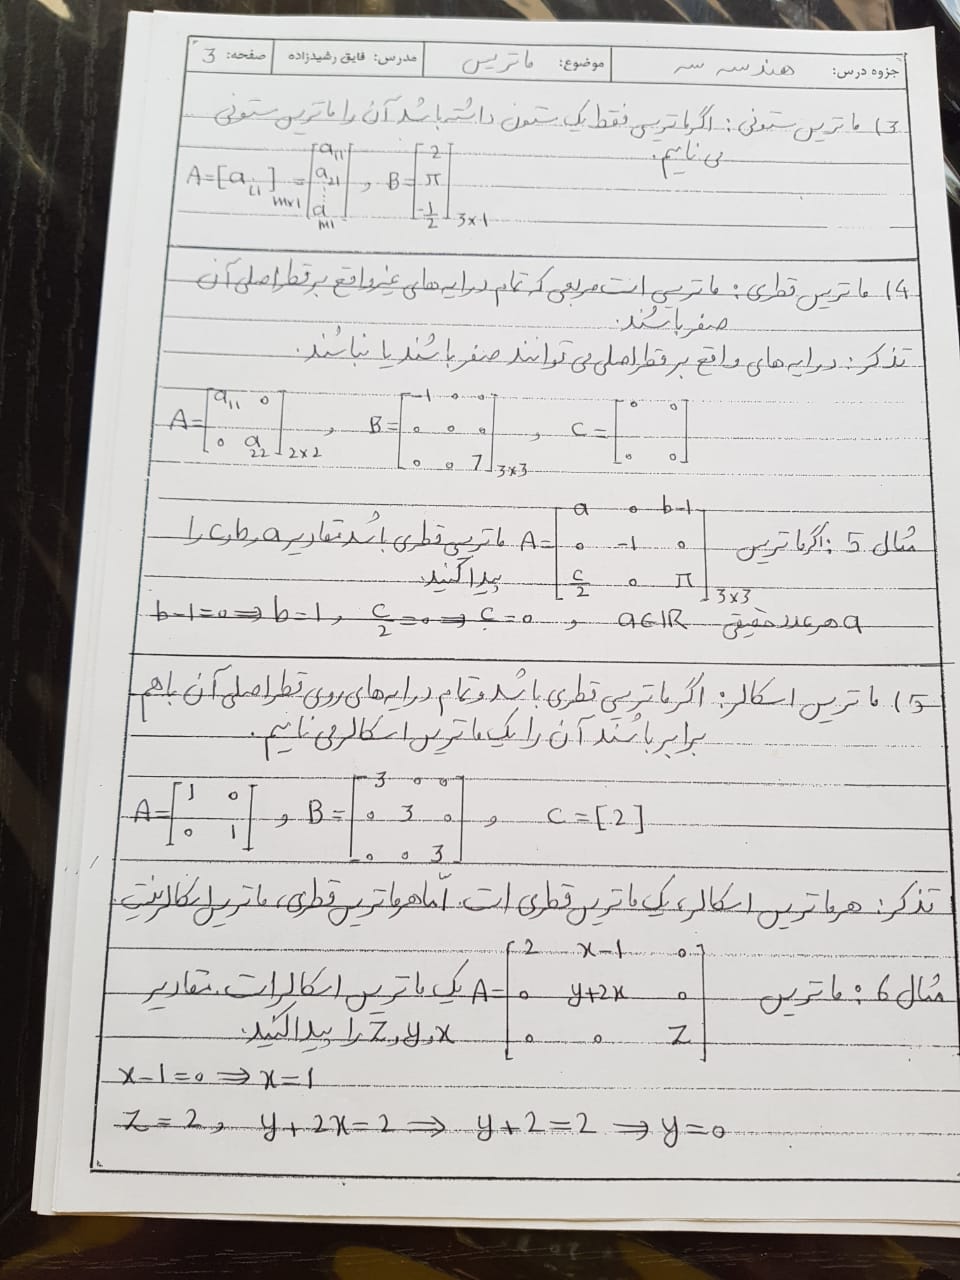 جزوه درس: هندسه سه موضوع: ماتریس مدرس: فایق رشیدزاده صفحه: 3
3) ماتریس ستونی: اگر ماتریسی فقط یک ستون داشته باشد آن را ماتریس ستونی
می نامیم.
A=[a_{i1}]_{m×1} = [a_{11} a_{21} ⋮ a_{m1}] , B=[2 π -1/2]_{3×1}
4) ماتریس قطری: ماتریسی است مربعی که تمام درایه های غیر واقع بر قطر اصلی آن
صفر باشند.
تذکر: درایه های واقع بر قطر اصلی می توانند صفر باشند یا نباشند.
A=[a_{11} 0
0 a_{22}]_{2×2} , B=[-1 0 0
0 0 0
0 0 7]_{3×3} , C=[0 0
0 0]
مثال 5: اگر ماتریس A=[a 0 b-1
0 -1 0
c/2 0 π]_{3×3} ماتریسی قطری باشد مقادیر a و b و c را
پیدا کنید.
b-1=0 ⇒ b=1 , c/2=0 ⇒ c=0 , a∈IR a هر عدد حقیقی
5) ماتریس اسکالر: اگر ماتریسی قطری باشد و تمام درایه های روی قطر اصلی آن باهم
برابر باشند آن را یک ماتریس اسکالر می نامیم.
A=[1 0
0 1] , B=[3 0 0
0 3 0
0 0 3] , C=[2]
تذکر: هر ماتریس اسکالر، یک ماتریس قطری است. امّا هر ماتریس قطری، ماتریس اسکالر نیست.
مثال 6: ماتریس A=[2 x-1 0
0 y+2x 0
0 0 Z] یک ماتریس اسکالر است. مقادیر
x و y و Z را پیدا کنید.
x-1=0 ⇒ x=1
Z=2 , y+2x=2 ⇒ y+2=2 ⇒ y=0